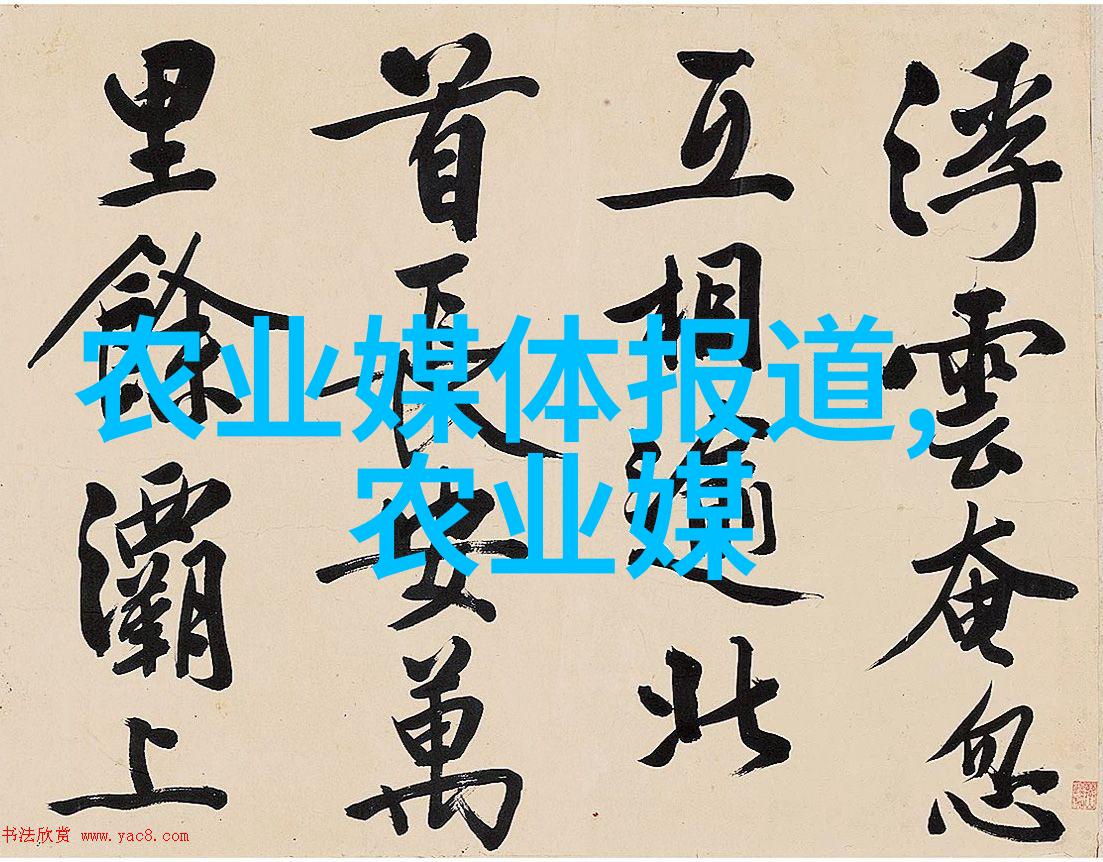 浮雲奄忽
互相逾北
首長安萬
里餘灞上
农业媒体报道,
农业媒
书法欣赏 www.yac8.com